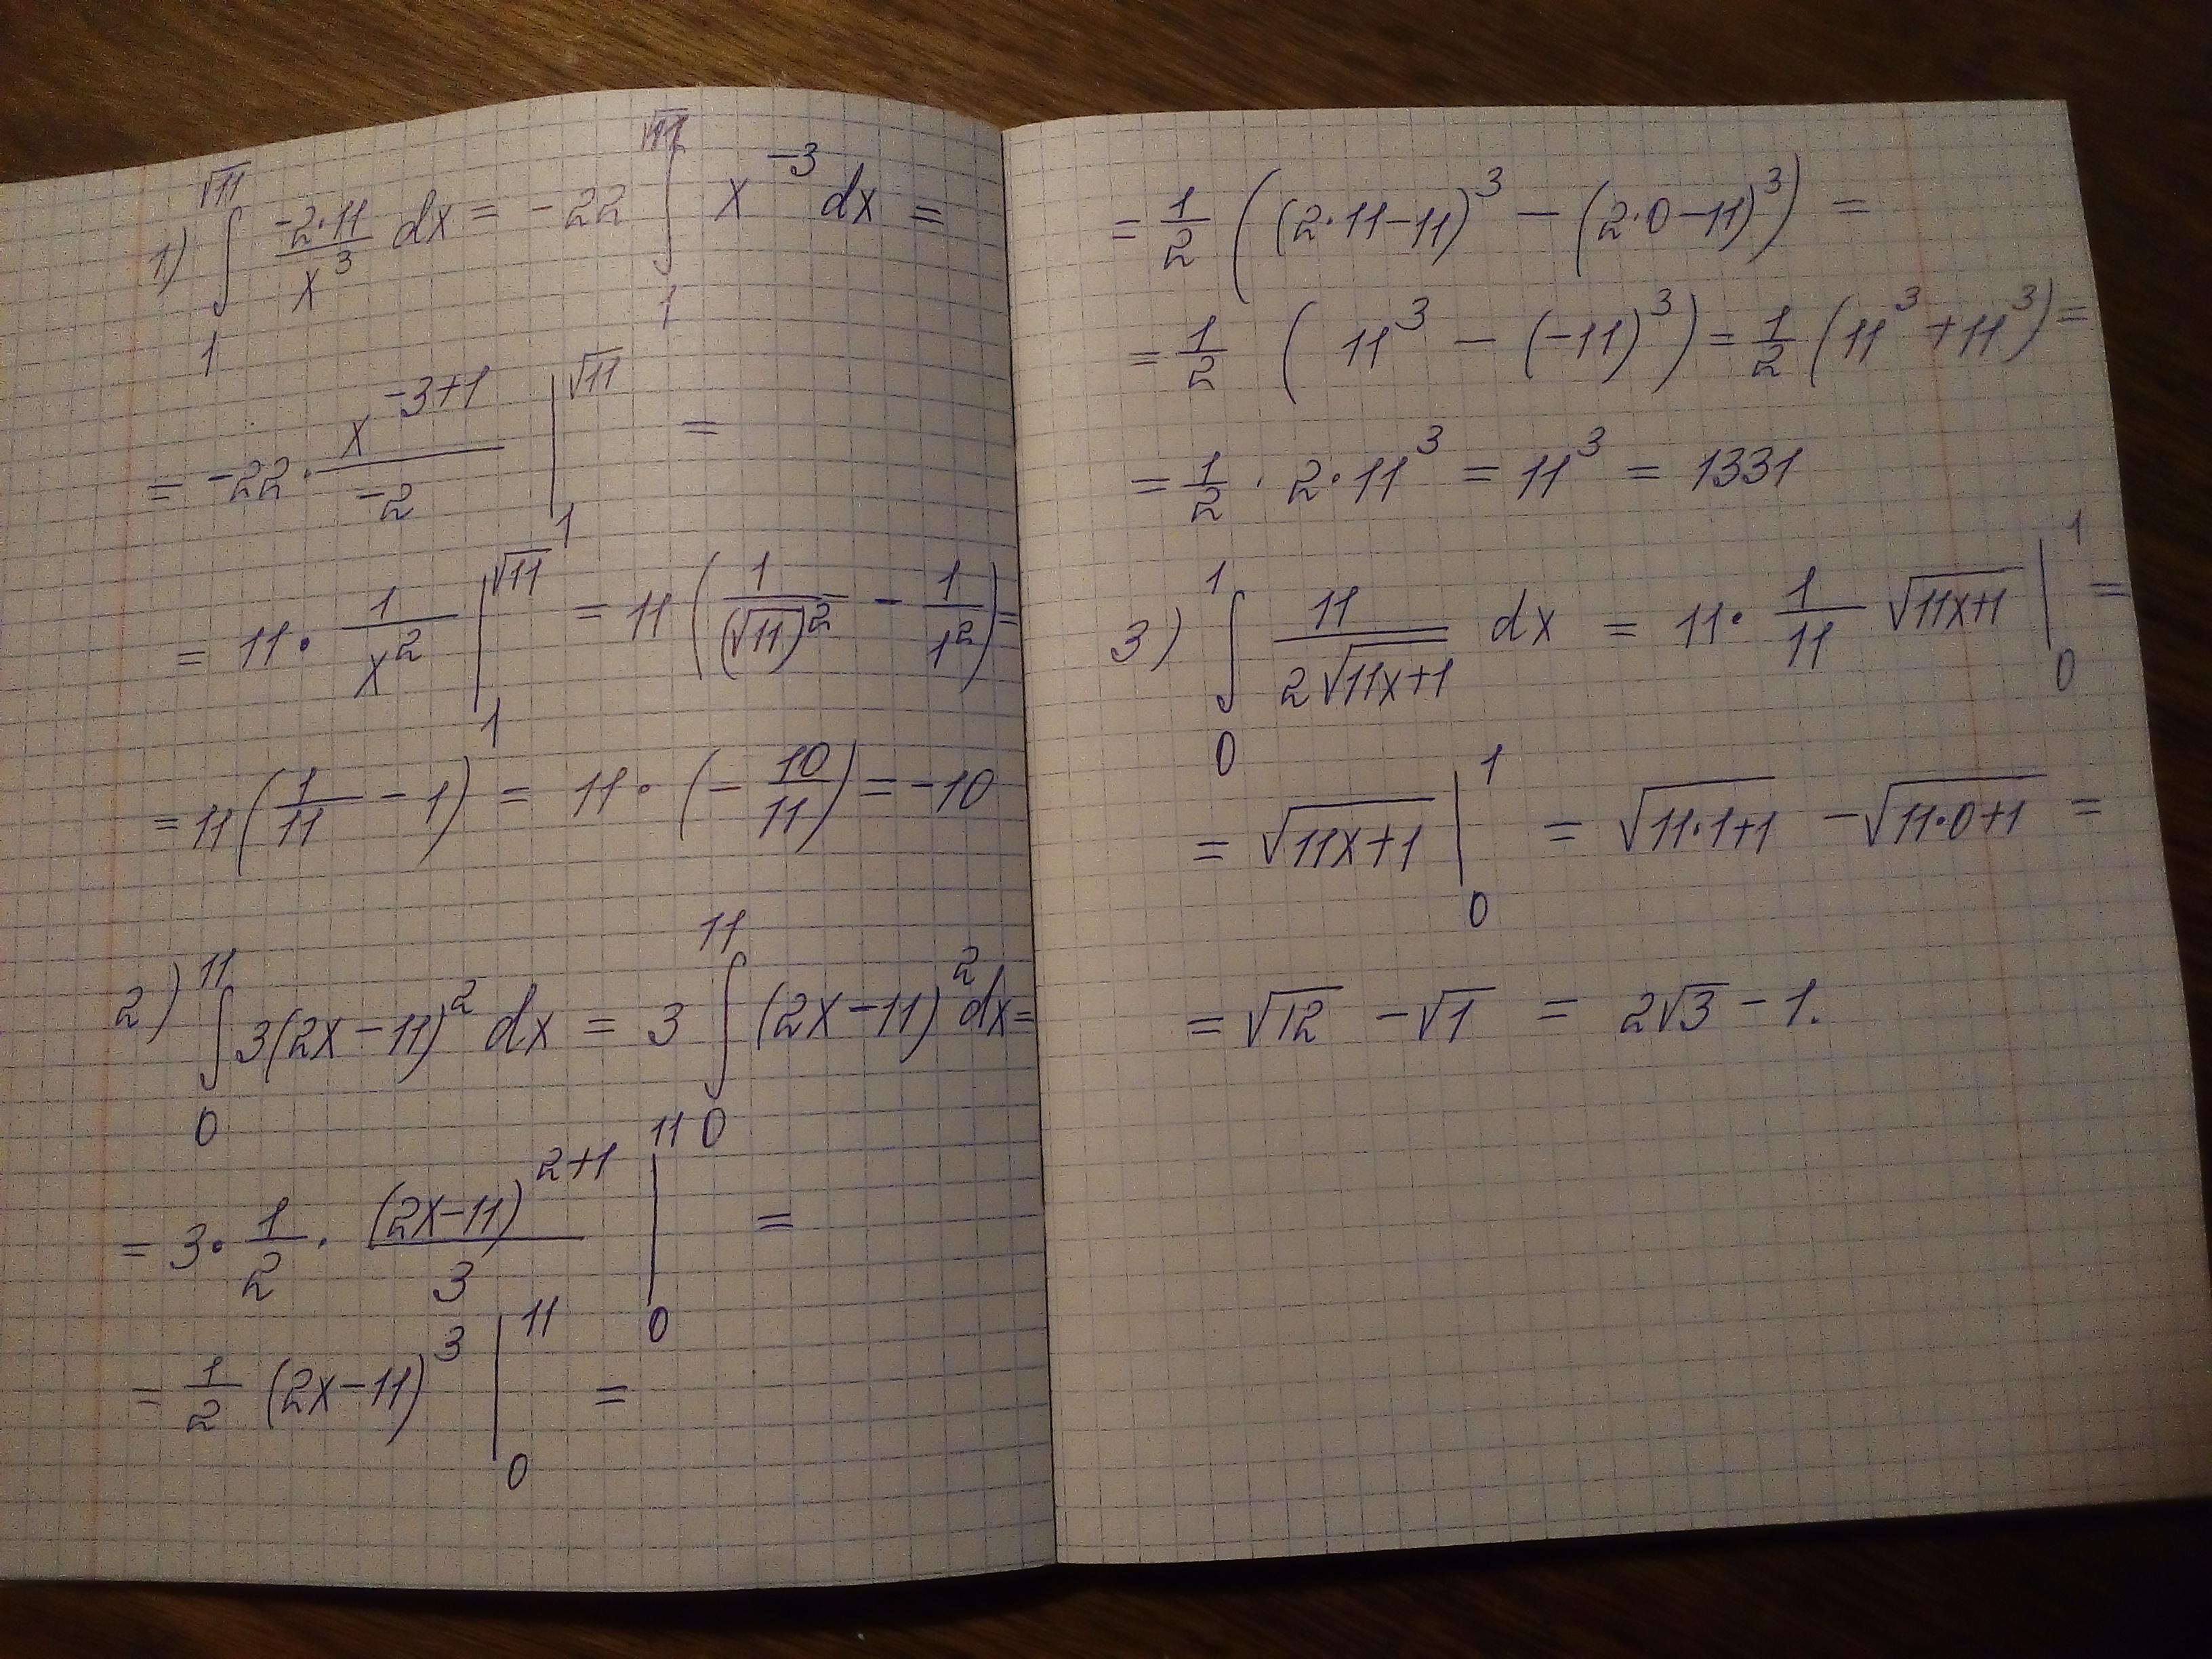 1) ∫₁^√11 (-2·11)/x³ dx = -22 ∫₁^√11 x⁻³ dx =
= -22 · x^(-3+1)/(-2) |₁^√11 =
= 11 · 1/x² |₁^√11 = 11 (1/(√11)² - 1/1²) =
= 11 (1/11 - 1) = 11 · (- 10/11) = -10
2) ∫₀^11 3(2x-11)² dx = 3 ∫₀^11 (2x-11)² dx =
= 3 · 1/2 · (2x-11)^(2+1)/3 |₀^11 =
= 1/2 (2x-11)³ |₀^11 =
= 1/2 ((2·11-11)³ - (2·0-11)³) =
= 1/2 (11³ - (-11)³) = 1/2 (11³ + 11³) =
= 1/2 · 2·11³ = 11³ = 1331
3) ∫₀^1 11/(2√(11x+1)) dx = 11 · 1/11 √(11x+1) |₀^1 =
= √(11x+1) |₀^1 = √(11·1+1) - √(11·0+1) =
= √12 - √1 = 2√3 - 1.